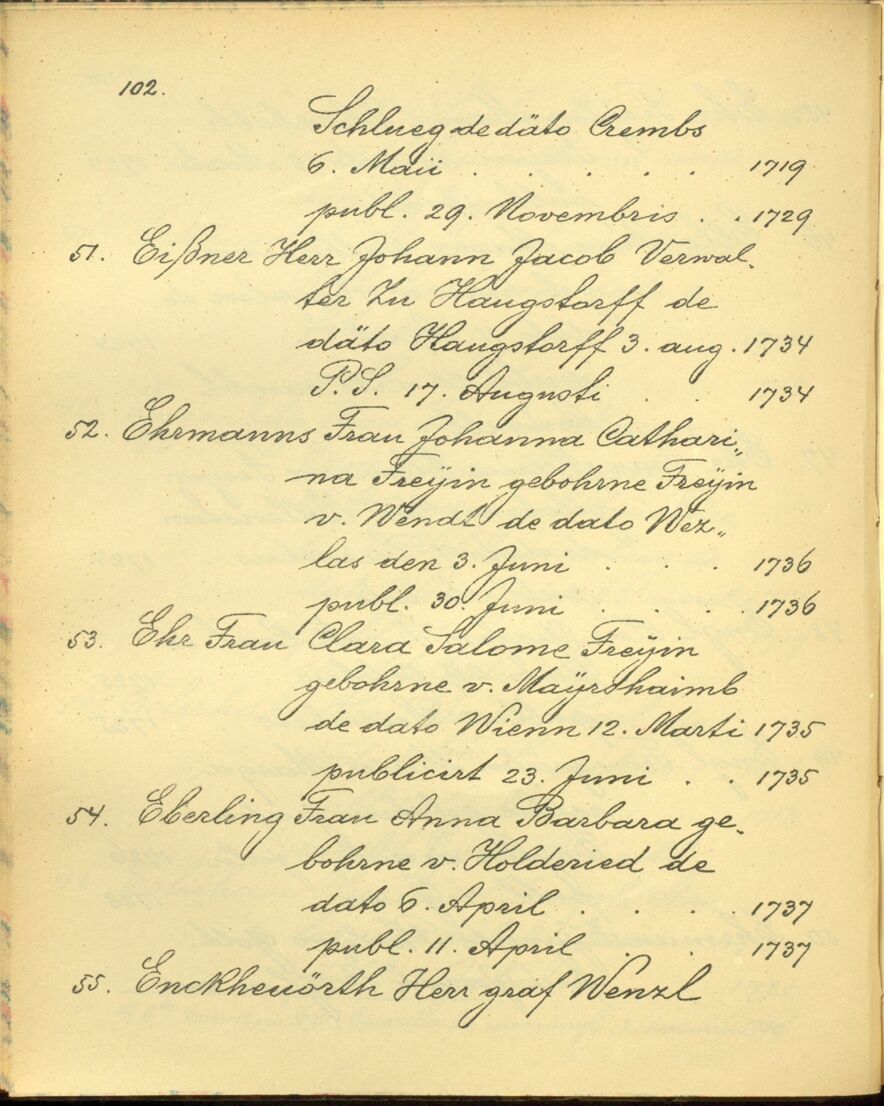 102.
Schlueg de däto Crembs
6. Maii . . . . . . 1719
publ. 29. Novembris . . 1729
51. Eißner Herr Johann Jacob Verwal-
ter Zu Haugstorff de
däto Haugstorff 3. aug. 1734
P. S. 17. Augusti . . 1734
52. Ehrmanns Frau Johanna Cathari„
na Freÿin gebohrne Freÿin
v. Wendt de dato Wez„
las den 3. Juni . . . 1736
publ. 30. Juni . . . . 1736
53. Ehr Frau Clara Salome Freÿin
gebohrne v. Maÿrshaimb
de dato Wienn 12. Marti 1735
publicirt 23. Juni . . 1735
54. Eberling Frau Anna Barbara ge-
bohrne v. Holderied de
dato 6. April . . . . 1737
publ. 11. April . . 1737
55. Enckheuörth Herr graf Wenzl